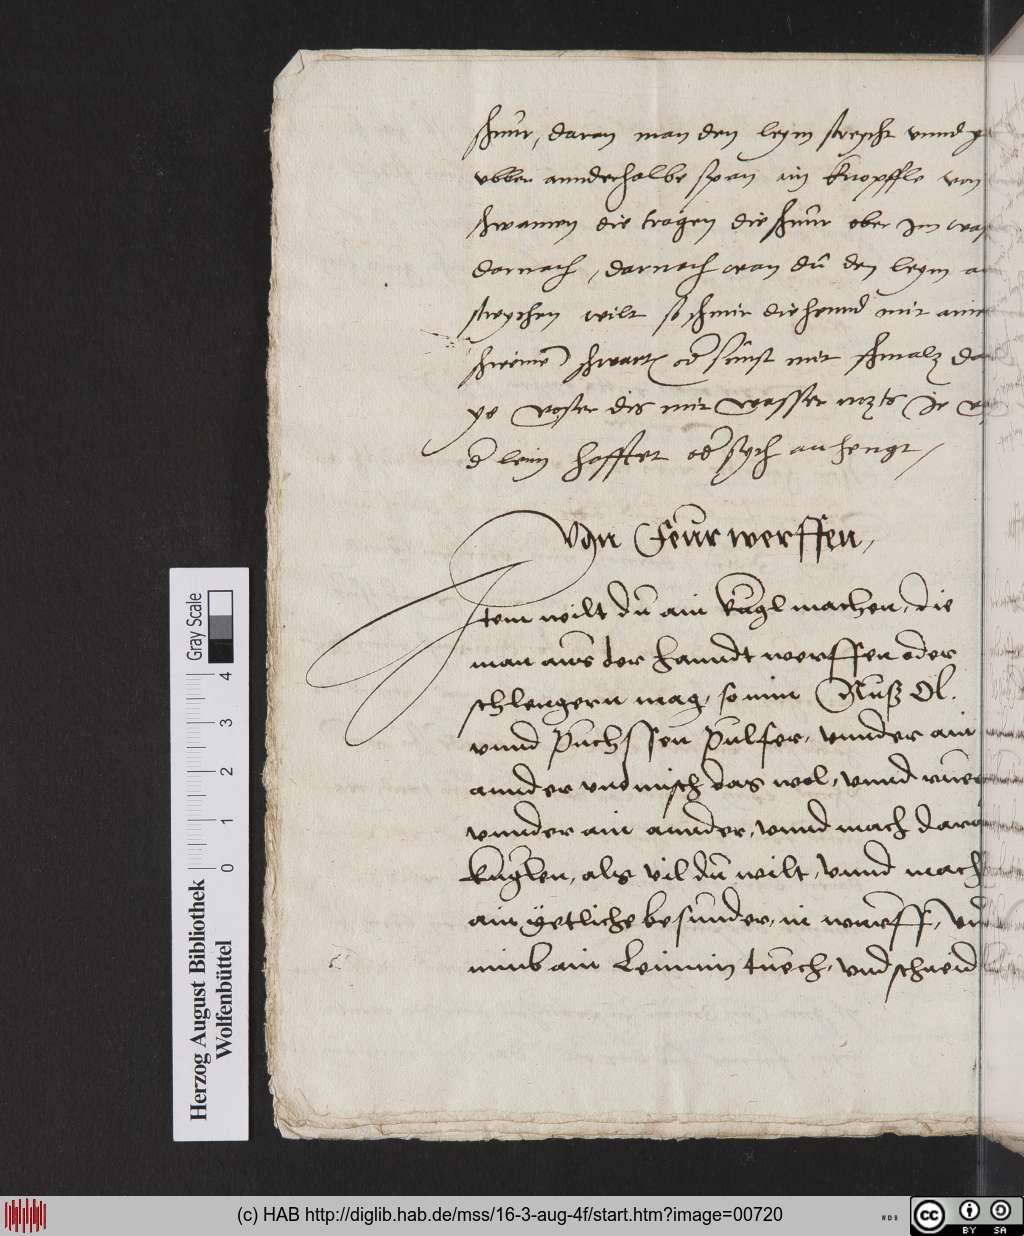 schnur, daran man den leym streycht vnnd
vber annderhalbe span ain knopffle von
schwamen die tragen die schnur ober Im
darnach, darnach wan du den leym
streychen wilt so schmir die hennd mit ainer
schweine schwart, od sunst mit schmalz
ye voster dis mit wasser Ir
d leim hafftet od sych anhengt,
Von Feur werffen,
Item wilt du ain kugl machen, die
man aus der hanndt werffen oder
schlengern mag, so nim Nuß Öl.
vnnd Puchssen Pulfer, vnnder ain
annder vnd misch das wol, vnnd ruer
vnnder ain annder, vnnd mach
kuglen, als vil du wilt, vnnd mach
ain yetliche besunder, in wurff,
nimb ain Leinnin tuech, vnd schneid
Gray Scale
4
3
2
1
0
Herzog August Bibliothek
Wolfenbüttel
(c) HAB http://diglib.hab.de/mss/16-3-aug-4f/start.htm?image=00720
WDB
cc
BY SA